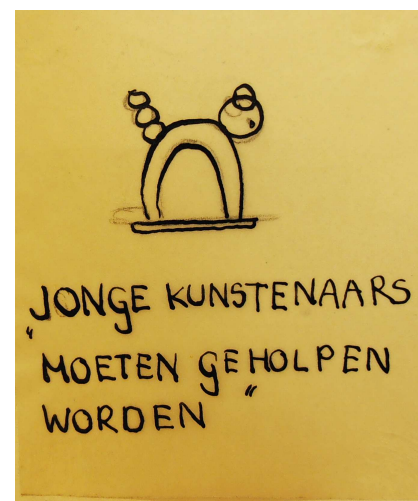 JONGE KUNSTENAARS
"MOETEN GEHOLPEN
WORDEN"